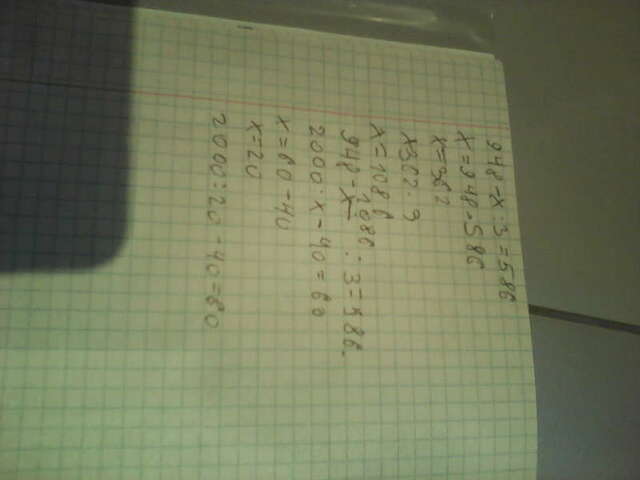 948-x:3=586
x=948-586
x=362
x362·3
x=1086
948-1086:3=586.
2000:x-40=60
x=60-40
x=20
2000:20-40=60